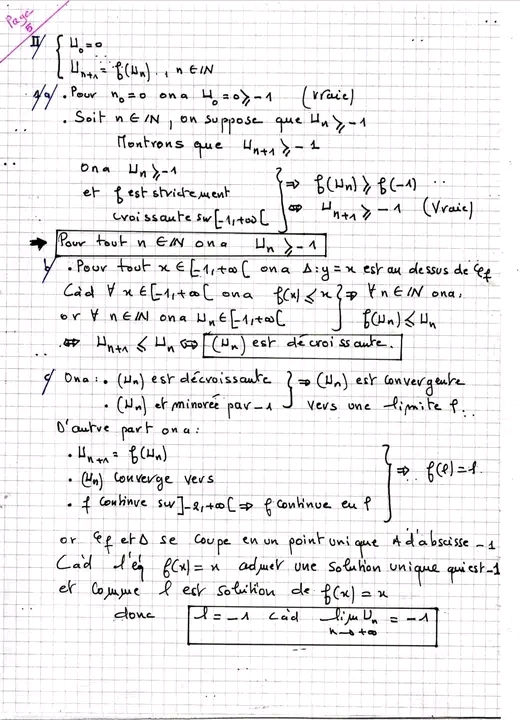 Page 5
II/ { U₀ = 0
U_{n+1} = f(U_n) , n ∈ IN
1/a/ . Pour n₀ = 0 on a U₀ = 0 ⩾ -1 (Vraie)
. Soit n ∈ IN, on suppose que U_n ⩾ -1
Montrons que U_{n+1} ⩾ -1
On a U_n ⩾ -1
et f est strictement } ⇒ f(U_n) ⩾ f(-1)
croissante sur [-1,+∞[ ⇔ U_{n+1} ⩾ -1 (Vraie)
→ Pour tout n ∈ IN on a U_n ⩾ -1
b/ . Pour tout x ∈ [-1,+∞[ on a Δ: y = x est au dessus de 𝒞f
Càd ∀ x ∈ [-1,+∞[ on a f(x) ⩽ x } ⇒ ∀ n ∈ IN ona.
or ∀ n ∈ IN on a U_n ∈ [-1,+∞[ f(U_n) ⩽ U_n
⇔ U_{n+1} ⩽ U_n ⇔ (U_n) est décroissante.
c/ Ona : . (U_n) est décroissante } ⇒ (U_n) est convergente
. (U_n) et minorée par -1 vers une limite l.
D'autre part on a :
. U_{n+1} = f(U_n)
. (U_n) converge vers } ⇒ f(l) = l.
. f continue sur ]-2,+∞[ ⇒ f continue en l
or 𝒞f et Δ se coupe en un point unique A d'abscisse -1
Càd l'éq f(x) = x admet une solution unique qui est -1
et comme l est solution de f(x) = x
donc l = -1 càd lim U_n = -1
n→+∞